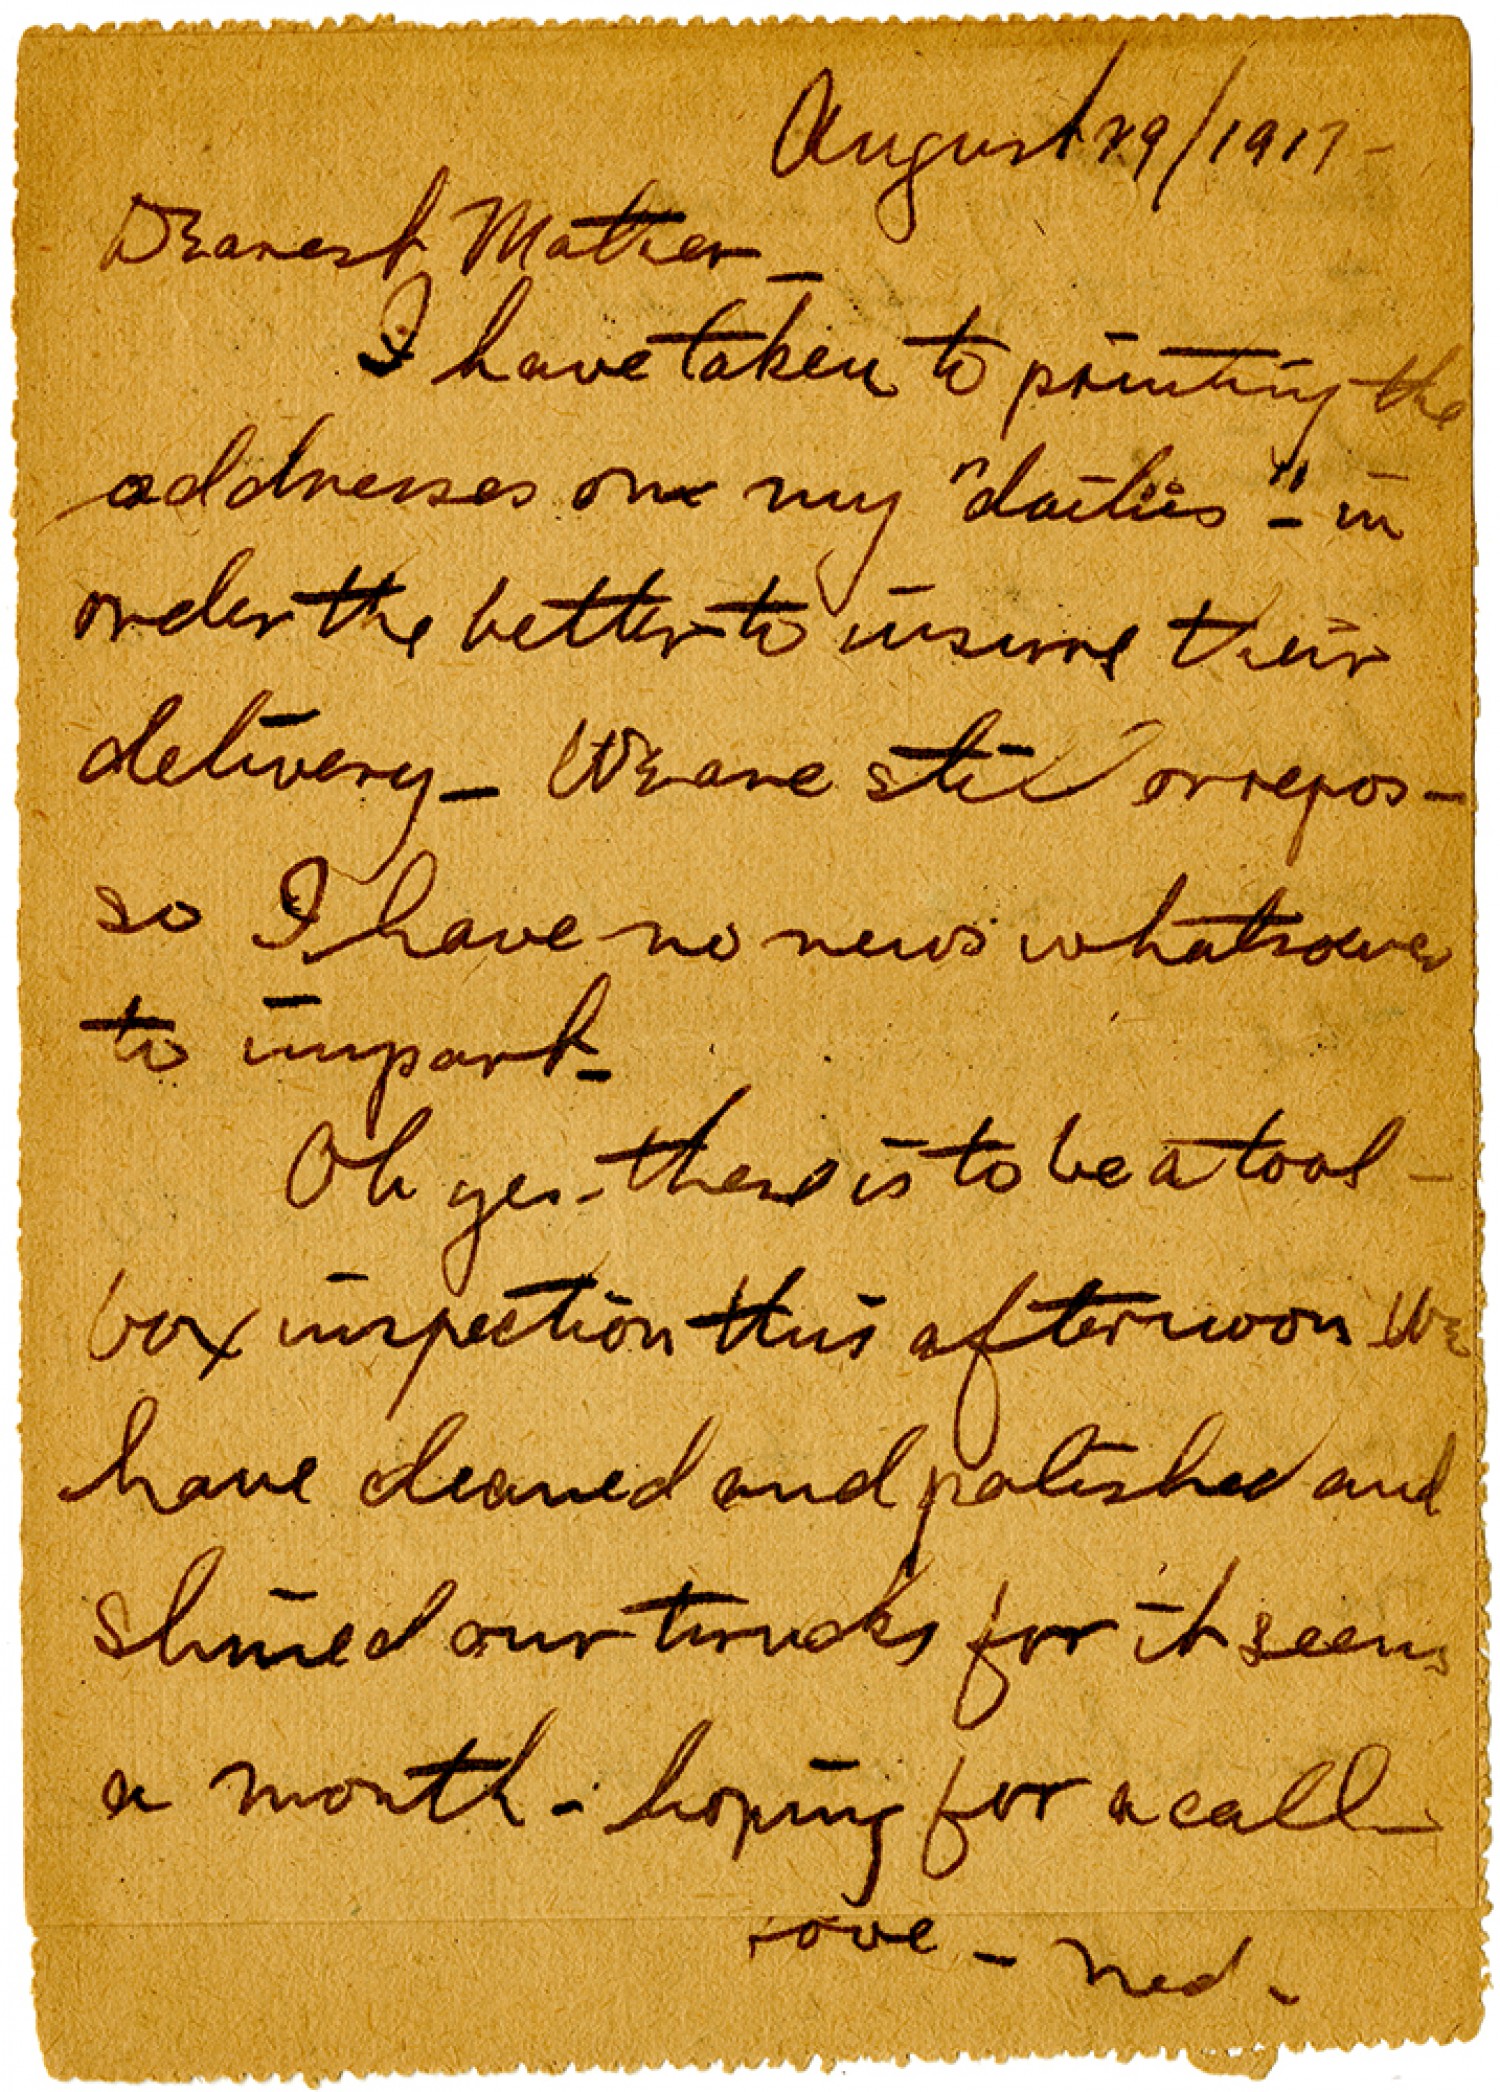 August 29/1917-
Dearest Mother-
I have taken to printing the
addresses on my "dailies" - in
order the better to insure their
delivery - We are still on repos -
so I have no news whatsoever
to impart -
Oh yes - there is to be a tool -
box inspection this afternoon We
have cleaned and polished and
shined our trucks for it seems
a month - hoping for a call -
Love - Ned -